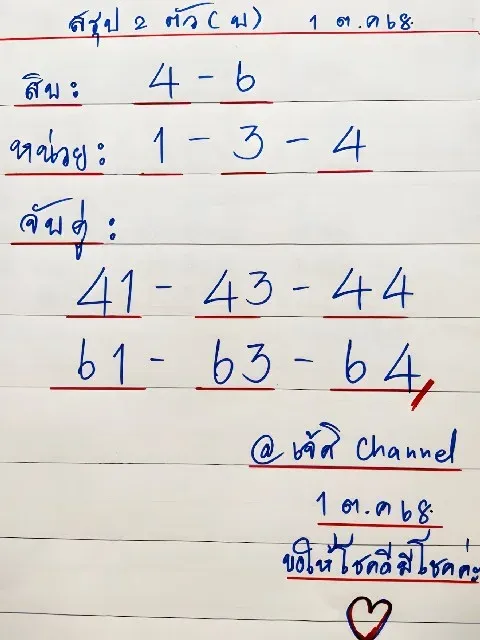 สรุป 2 ตัว (บ) 1 ต.ค 68
สิบ : 4 - 6
หน่วย : 1 - 3 - 4
จับคู่ :
41 - 43 - 44
61 - 63 - 64
@ เจ๊ศิ Channel
1 ต.ค 68
ขอให้โชคดีมีโชคค่ะ